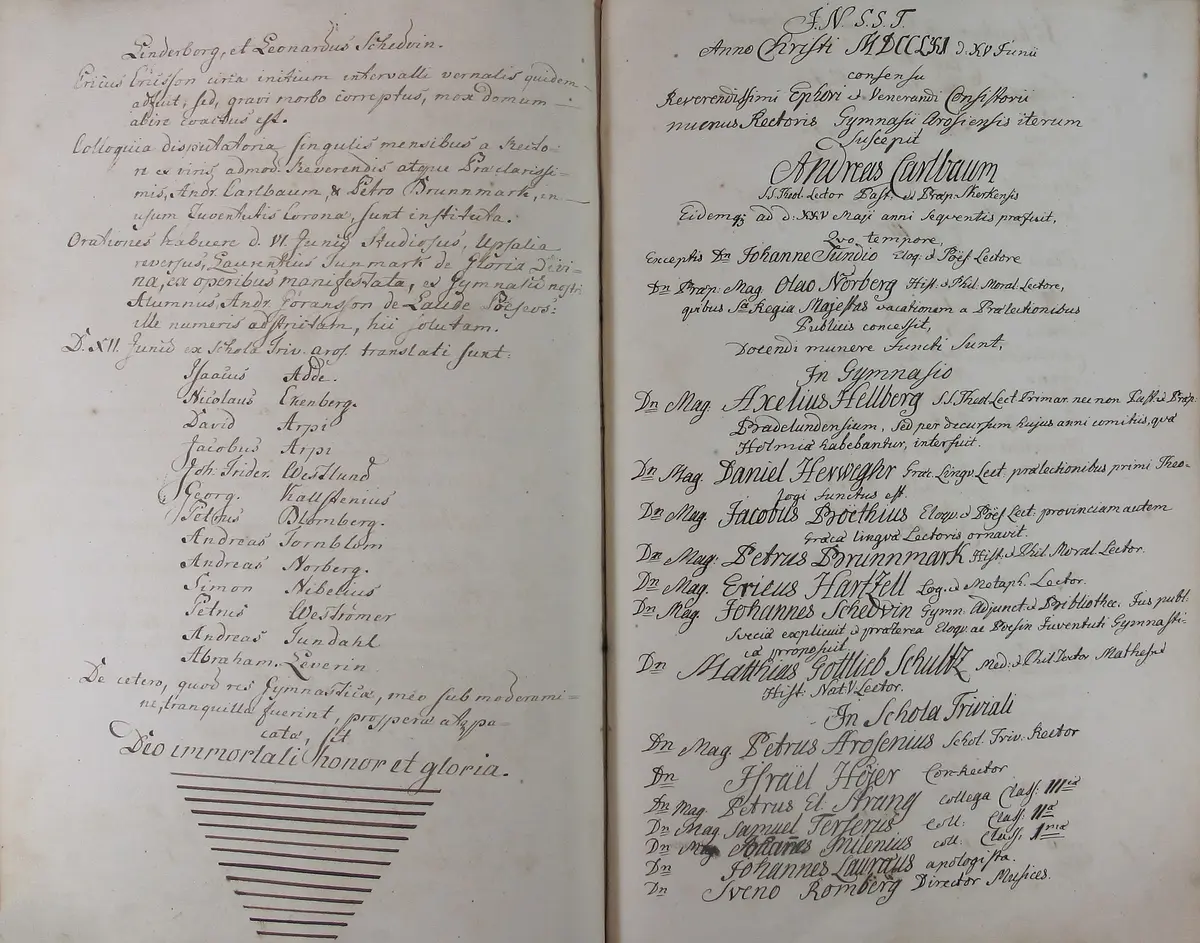 Linderborg, et Leonardus Schedvin.
Ericus Ericsson circa initium intervalli vernalis quidem
adfuit, sed, gravi morbo correptus, mox domum
abire coactus est.
Colloquia disputatoria singulis mensibus a Recto-
re ex viris admod. Reverendis atque Præclarissi-
mis, Andr. Carlbaum, & Petro Brunnmark, in
usum Juventutis Corona, sunt instituta.
Orationes habuere d. VI. Junii Studiosus, Upsalia
reversus, Laurentius Junmark de Gloria Divi-
na, ex operibus manifestata, et Gymnasii nostri
Alumnus Andr. Göransson de Laude Poëseos:
ille numeris adstrictam, hic solutam.
D. XII. Junii ex Schola Triv. aros. translati sunt:
Isaacus Adde.
Nicolaus Ekenberg.
David Arpi
Jacobus Arpi
Joh. Frider. Westlund
Georg. Kallstenius
Petrus Blomberg.
Andreas Tornblom
Andreas Norberg.
Simon Nibelius
Petrus Weströmer
Andreas Sundahl
Abraham. Leverin
De cetero, quod res Gymnastica, meo sub moderami-
ne, tranquilla fuerint, prospera atq; pa-
cata, sit
Deo immortali honor et gloria.
J. N. S. S. T.
Anno Christi MDCCLXI d. XV Junii
consensu
Reverendissimi Ephori et Venerandi Consistorii
munus Rectoris Gymnasii Arosiensis iterum
suscepit
Andreas Carlbaum
S.S. Theol. Lector Past. et Præp.
Eidemq; ad d. XXV Maji anni sequentis præfuit,
Qvo tempore,
Exceptis Dn Johanne Fundio Eloq. et Poës Lectore
Dn Præp. Mag. Olao Norberg Hist. et Phil. Moral Lectore,
quibus Sa Regia Majestas vacationem a Prælectionibus
Publicis concessit,
Docendi munere functi sunt,
In Gymnasio
Dn Mag. Axelius Hellberg S.S. Theol. Lect Primar. nec non Past. et Præp.
Badelundensium, sed per decursum hujus anni comitiis, quæ
Holmiæ habebantur, interfuit.
Dn Mag. Daniel Herweghr Græc. Lingv. Lect. prælectionibus primi Theo-
logi functus est.
Dn Mag. Jacobus Boëthius Eloqv. et Poës Lect. provinciam autem
Græcæ lingvæ Lectoris ornavit.
Dn Mag. Petrus Brunnmark Hist. et Phil. Moral Lector.
Dn Mag. Ericus Hartzell Log. et Metaph. Lector.
Dn Mag. Johannes Schedvin Gymn. Adjunct. et Bibliothec. Jus publ.
Sveciæ explicuit et præterea Eloqv. ac Poësin Juventuti Gymnasti-
cæ proposuit.
Dn Matthias Gottlieb Schultz Med. et Phil Doctor Matheseos
Hist. Nat. Lector.
In Schola Triviali
Dn Mag. Petrus Arosenius Schol. Triv. Rector
Dn Israël Höjer Con-rector
Dn Mag. Petrus El. Strang collega Class: IIIæ
Dn Mag Samuel Terserus coll: Class: IIæ
Dn Mag Johannes coll: Class: Imæ
Dn Johannes Lauræus apologista.
Dn Sveno Romberg Director Musices.